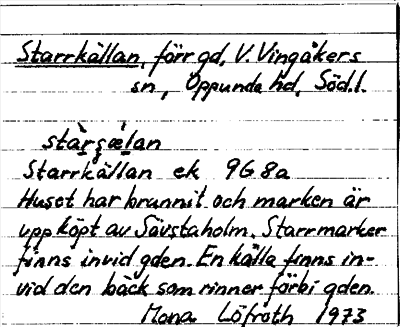 Starrkällan, förr gd, V. Vingåkers
sn, Oppunda hd, Söd.l.
stàrṣœ̀lan
Starrkällan ek 9G8a
Huset har brunnit och marken är
uppköpt av Sävstaholm. Starrmarker
finns invid gden. En källa finns in-
vid den bäck som rinner förbi gden.
Mona Löfroth 1973